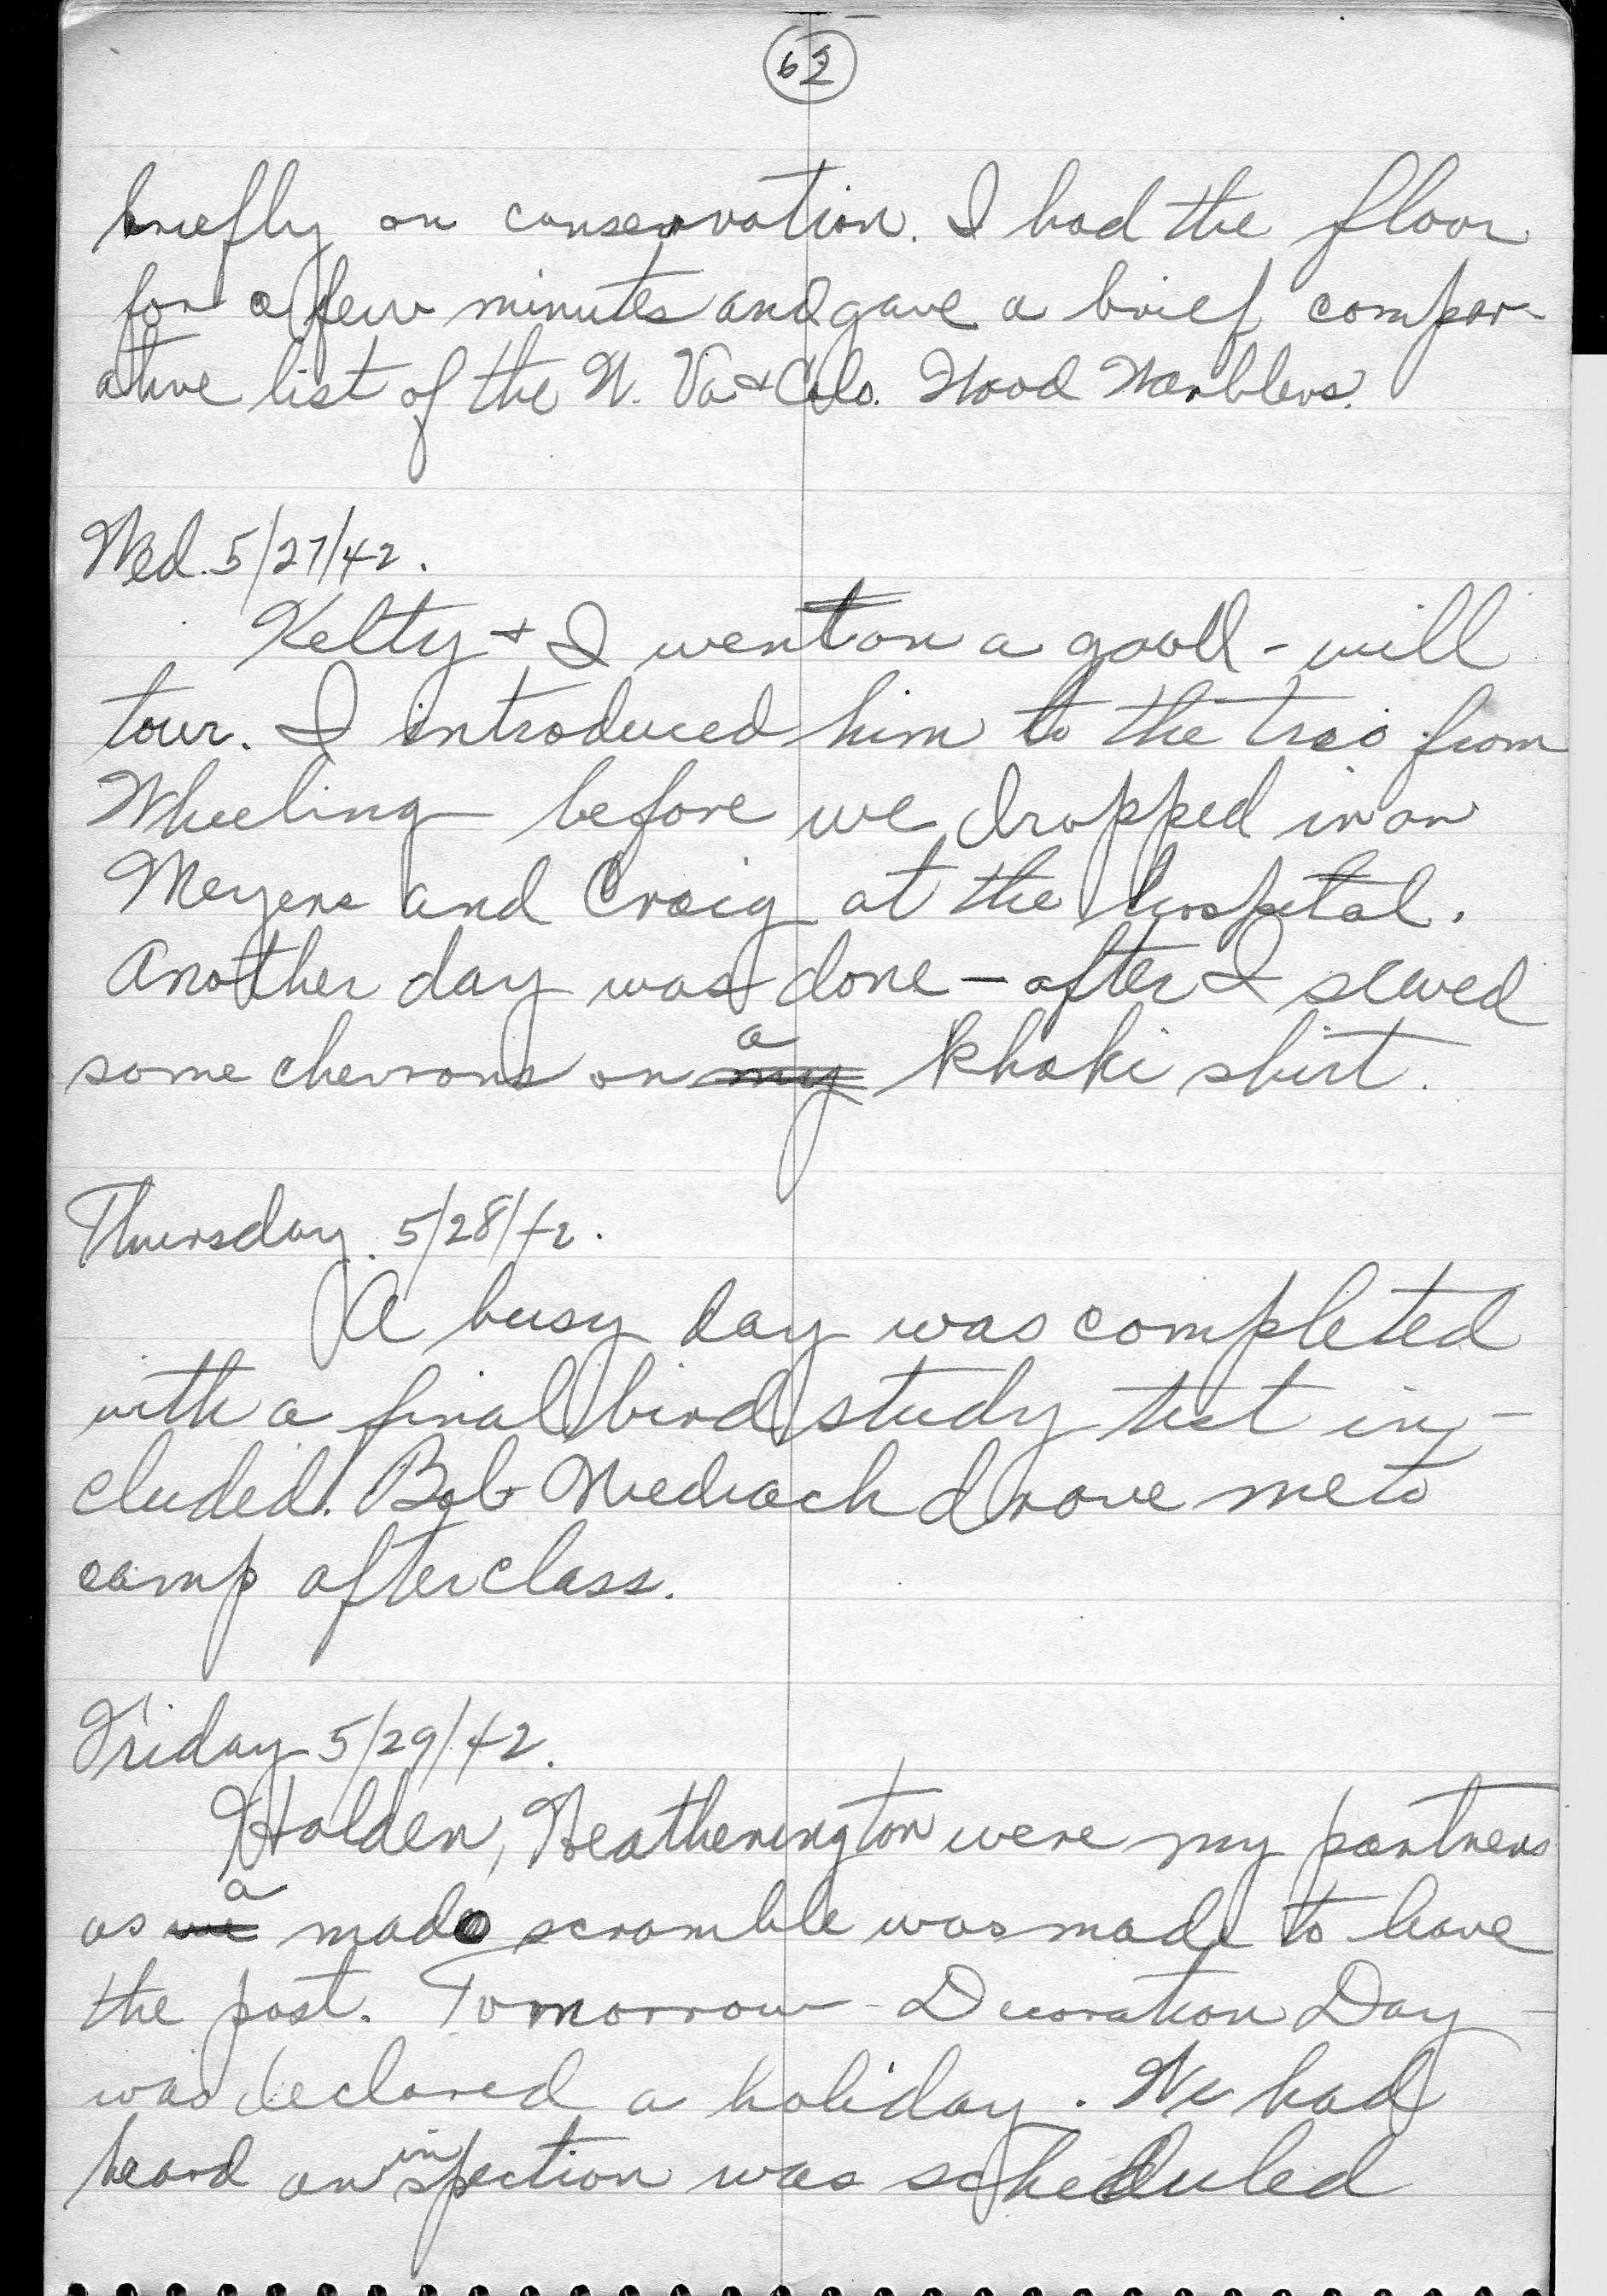 62
briefly on conservation. I had the floor
for a few minutes and gave a brief compar-
ative list of the W. Va + Colo. Wood Warblers.
Wed. 5/27/42.
Kelty + I went on a good-will
tour. I introduced him to the trio from
Wheeling before we dropped in on
Meyers and Craig at the hospital.
Another day was done – after I sewed
a
some chevrons on my khaki shirt.
Thursday. 5/28/42.
A busy day was completed
with a final bird study test in-
cluded. Bob drove me to
camp after class.
Friday 5/29/42.
Holden, Heatherington were my partners
a
as we mad scramble was made to leave
the post. Tomorrow - Decoration Day -
was declared a holiday. We had
heard an inspection was scheduled